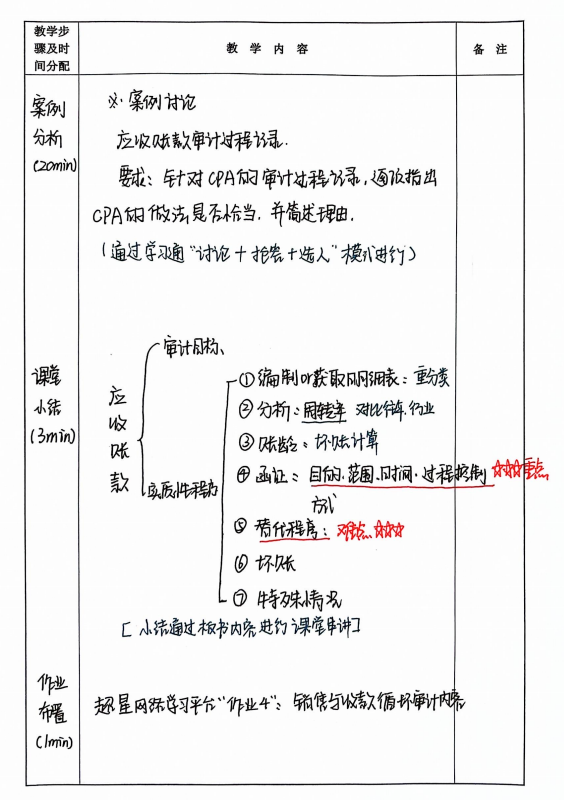 教学步骤及时间分配
教 学 内 容
备 注
案例分析(20min)
※. 案例讨论
应收账款审计过程记录.
要求：针对CPA的审计过程记录，逐项指出
CPA的做法是否恰当.并简述理由.
(通过学习通"讨论+抢答+选人"模式进行)
课堂小结(3min)
应收账款
审计目标、
实质性程序
①编制or获取明细表：重分类
②分析：周转率 对比往年.行业
③账龄：坏账计算
④函证：目的.范围.时间.过程控制 ☆☆☆重点
方式
⑤替代程序：难点☆☆☆
⑥坏账
⑦特殊情况
[小结通过板书内容进行课堂串讲]
作业布置(1min)
超星网络学习平台"作业4"：销售与收款循环审计内容